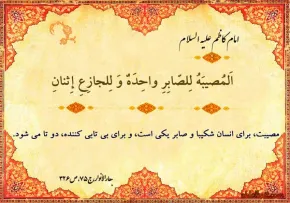 امام کاظم علیه السلام
اَلمُصیبَهُ لِلصّابِرِ واحِدَهٌ وَ لِلجازِعِ إثنانِ
مصیبت، برای انسان شکیبا و صابر یکی است، و برای بی تابی کننده، دو تا می شود.
بحارالانوار، ج۷۵، ص۳۲۶